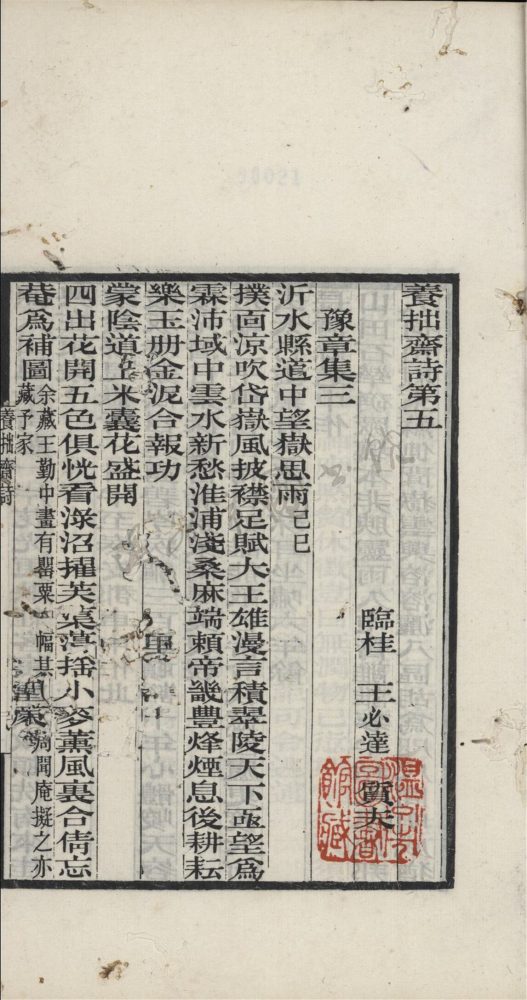 養拙齋詩第五
臨桂 王必達 質夫
豫章集三
沂水縣道中望嶽思雨己巳
撲面涼吹岱嶽風披襟足賦大王雄漫言積翠陵天下亟望爲
霖沛域中雲水新愁淮浦淺桑麻端賴帝畿豐烽煙息後耕耘
樂玉册金泥合報功
蒙陰道上米囊花盛開
四出花開五色俱恍看淥沼擢芙蕖漫搖小麥薰風裏合倩忘
菴爲補圖余藏王勤中畫有罌粟一幅其聞庵擬之亦藏予家
養拙齋詩